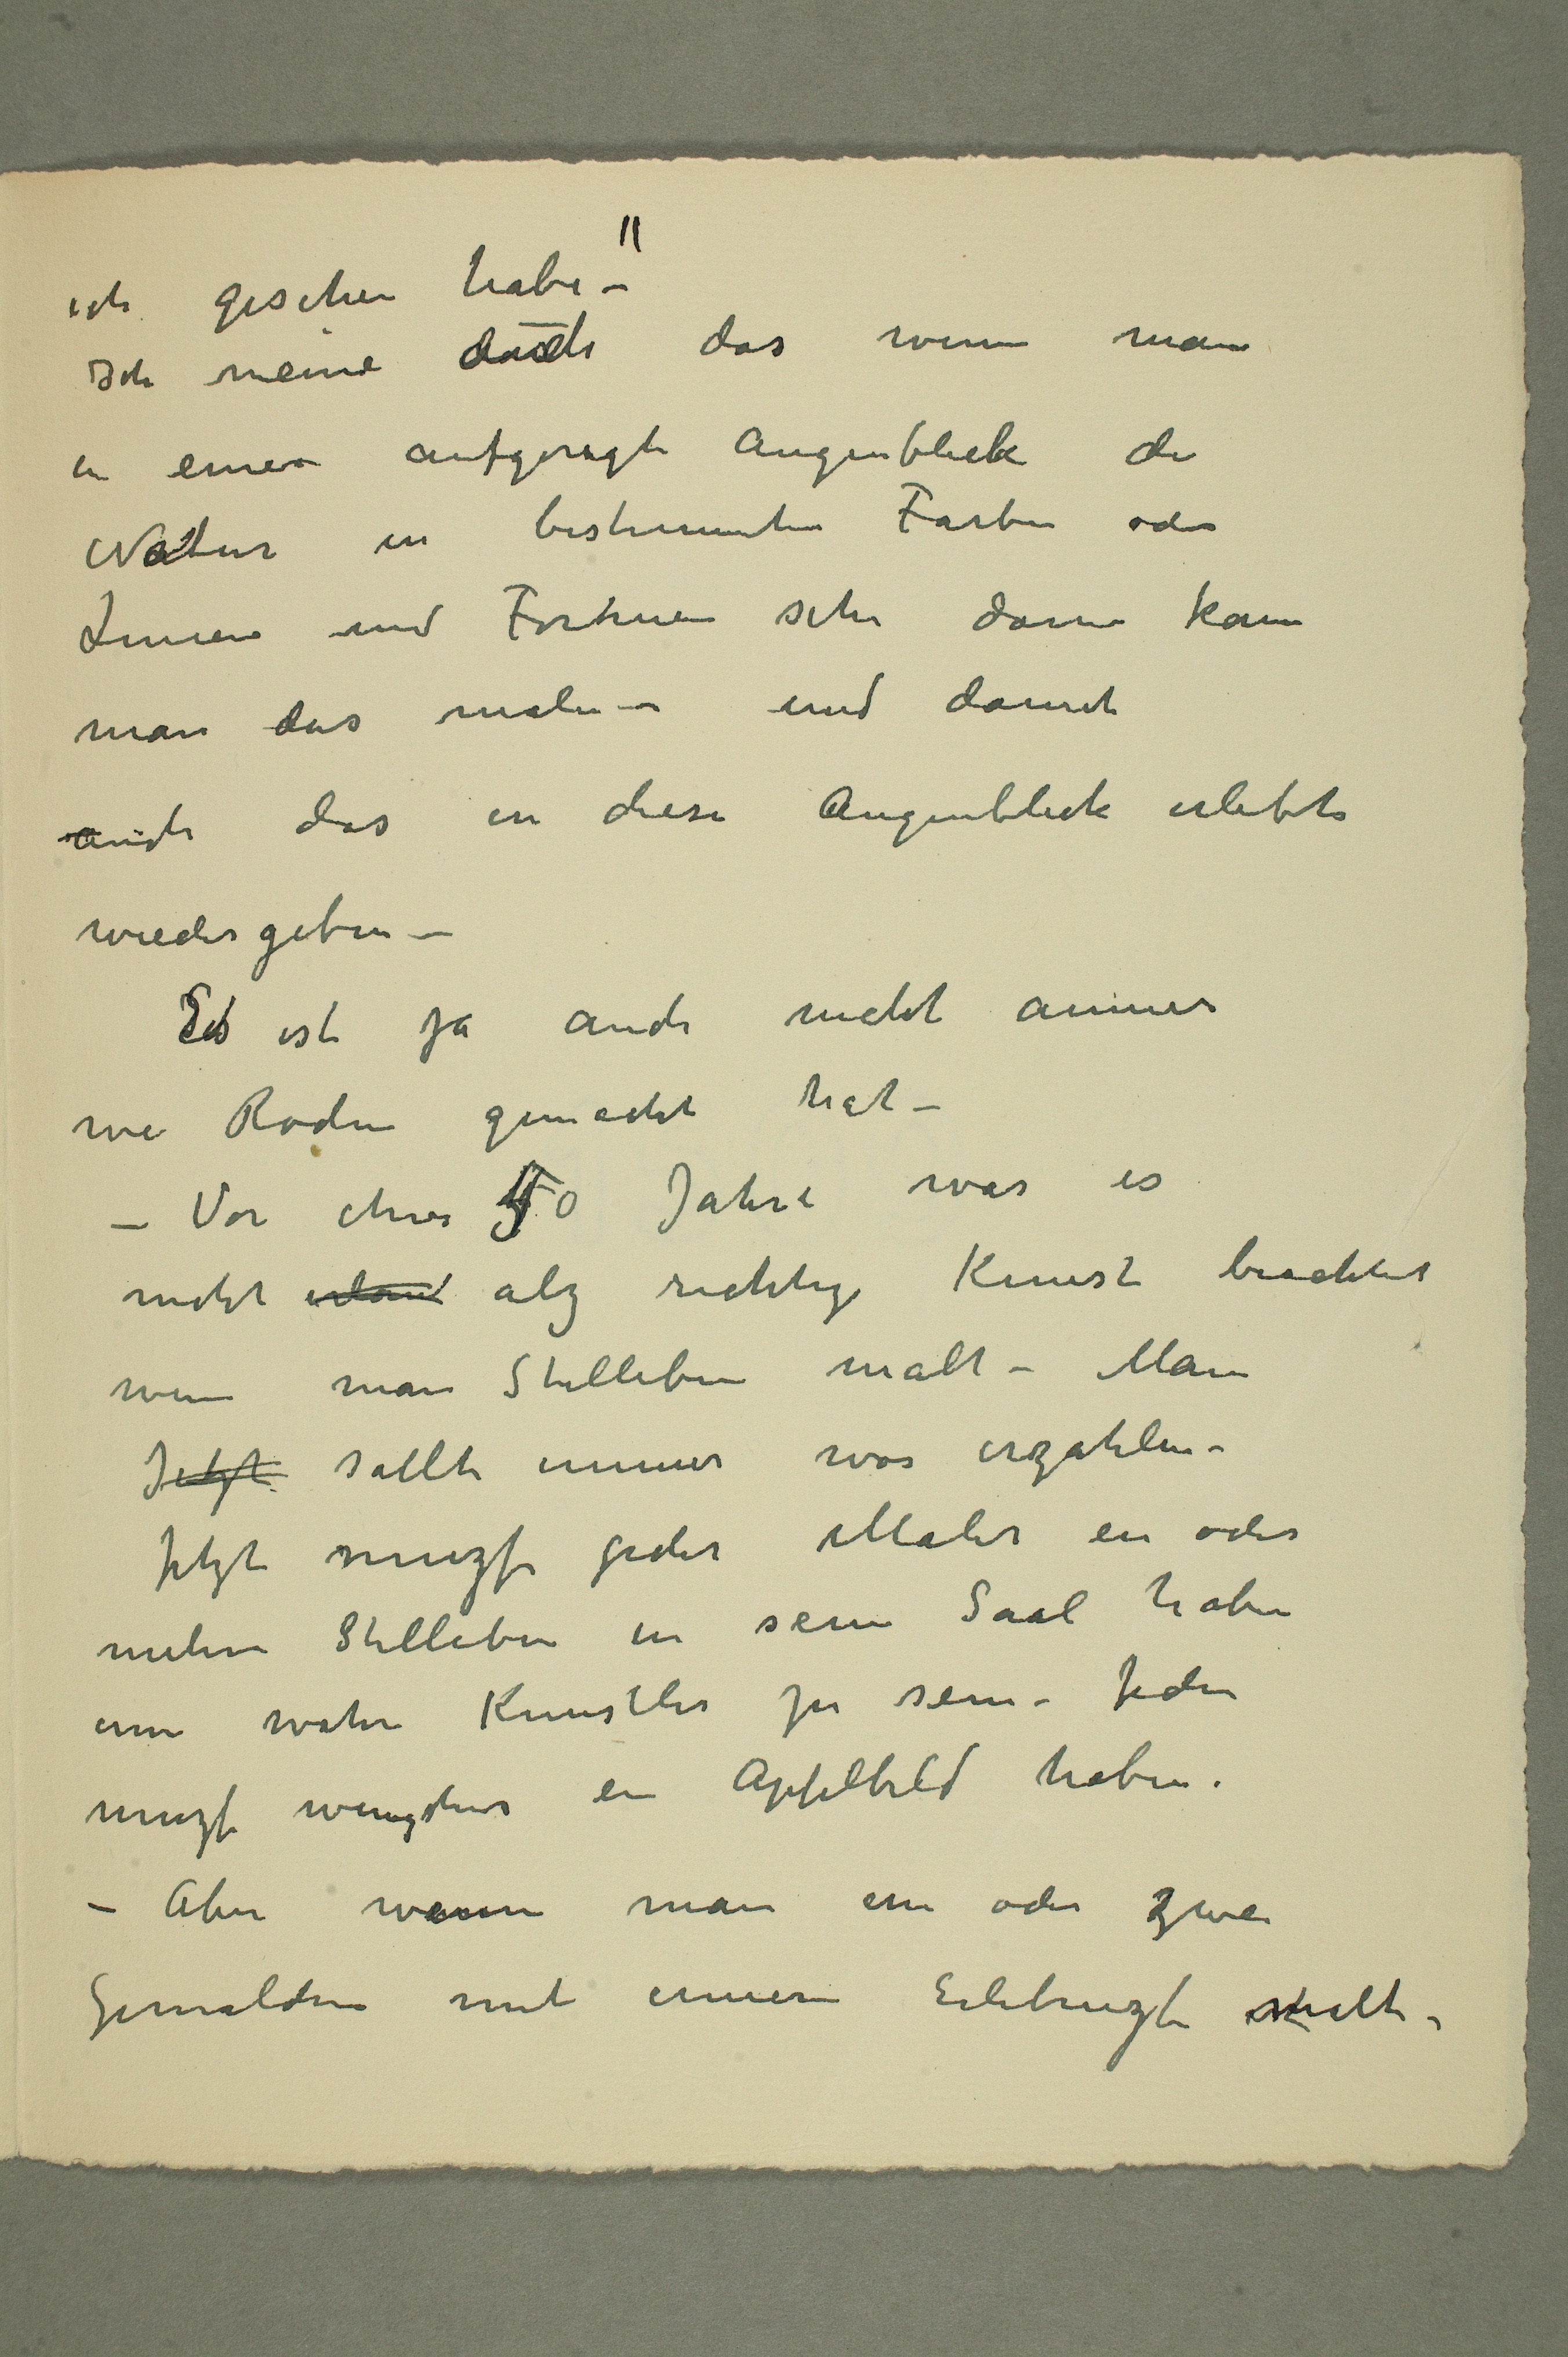 ich gesehen habe –"
Ich meine auch das wenn man
in einer aufgeregte Augenblick die
Natur in bestimmten Farben oder
Linien und Formen sehe dann kann
man das malen – und damit
auch das in diese Augenblick erlebte
wiedergeben –
Es ist ja auch nicht immer
wie Rodin gemacht hat –
– Vor etwa 50 Jahre war es
nicht alz richtige Kunst beachtet
wenn man Stilleben malt – Man
Jetzt sollte immer was erzahlen –
Jetzt muzs jeder Maler ein oder
mehre Stilleben in sein Saal haben
um wahre Kunstler zu sein – Jeder
muzs wenigstens ein Apfelbild haben.
– Aber wenn man ein oder zwei
Gemalden mit innern Erlebnizs malt –